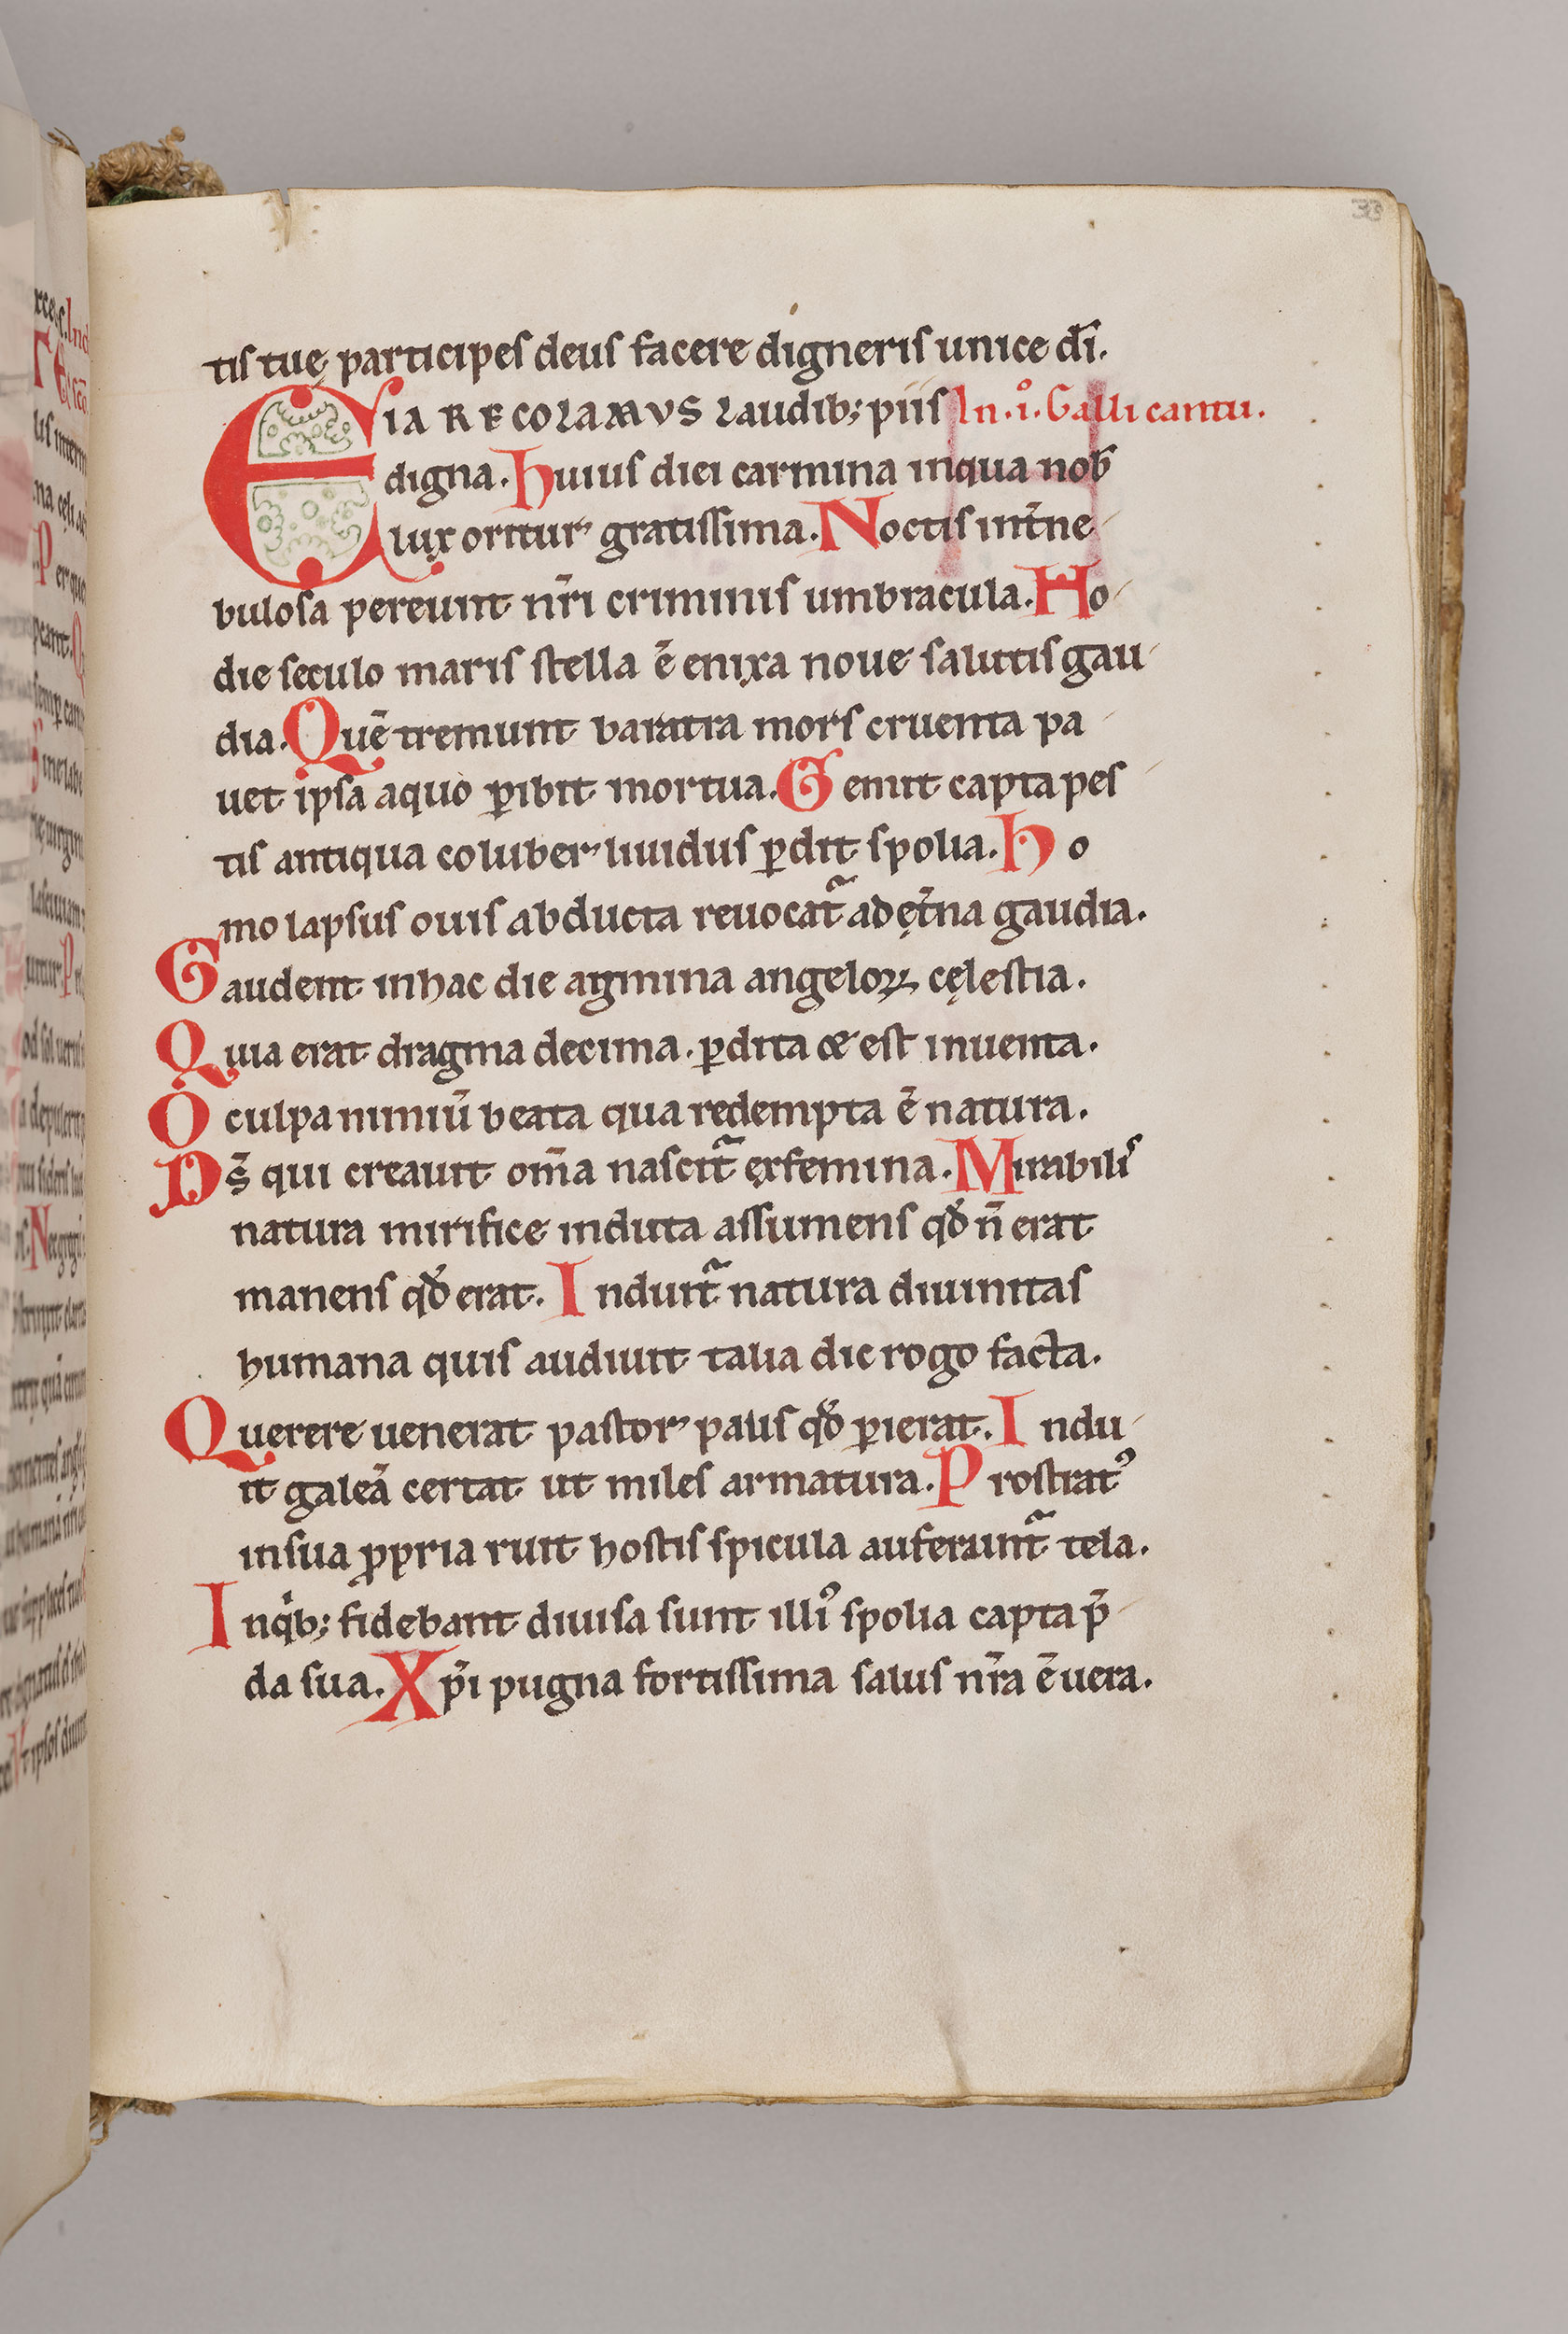 33
tis tuę participes deus facere digneris unice dī.
EIA RECOLAMVS laudib; piis In .i. Galli cantu.
digna. Huius diei carmina inqua nob̄
lux oritur gratissima. Noctis int̄ne
bulosa pereunt nr̄i criminis umbracula. Ho
die seculo maris stella ē enixa noue salutis gau
dia. Quē tremunt baratra mors cruenta pa
uet ipsa aquo ꝑibit mortua. Gemit capta pes
tis antiqua coluber liuidus ꝑdit spolia. Ho
mo lapsus ouis abducta reuocat̃ ad ęt̄na gaudia.
Gaudent inhac die agmina angeloꝝ cęlestia.
Quia erat dragma decima. ꝑdita & est inuenta.
O culpa nimiū beata qua redempta ē natura.
Ds̄ qui creauit om̄a nascit̃ ex femina. Mirabilis
natura mirifice induta assumens qđ n̄ erat
manens qđ erat. Induit̃ natura diuinitas
humana quis audiuit talia dic rogo facta.
Querere uenerat pastor pius qđ ꝑierat. Indu
it galeā certat ut miles armatura. Prostratꝰ
insua ꝓpria ruit hostis spicula auferunt̃ tela.
Inqⁱb; fidebant diuisa sunt illiꝰ spolia capta p̄
da sua. Xp̄i pugna fortissima salus nr̄a ē uera.